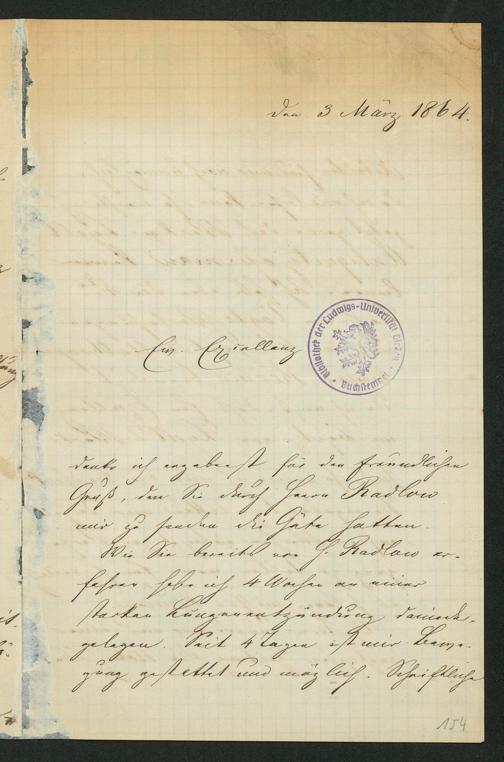 den 3 März 1864.
Ew. Excellenz
Bibliothek der Ludwigs-Universität Giessen
Buchstempel
danke ich ergebenst für den freundlichen
Gruß, den Sie durch Herrn Radlow
mir zu senden die Güte hatten.
Wie Sie bereits von H. Radlow er-
fahren habe ich 4 Wochen an einer
starken Lungenentzündung darnieder-
gelegen. Seit 4 Tagen ist mir Bewe-
gung gestattet und möglich. Schriftliche
154